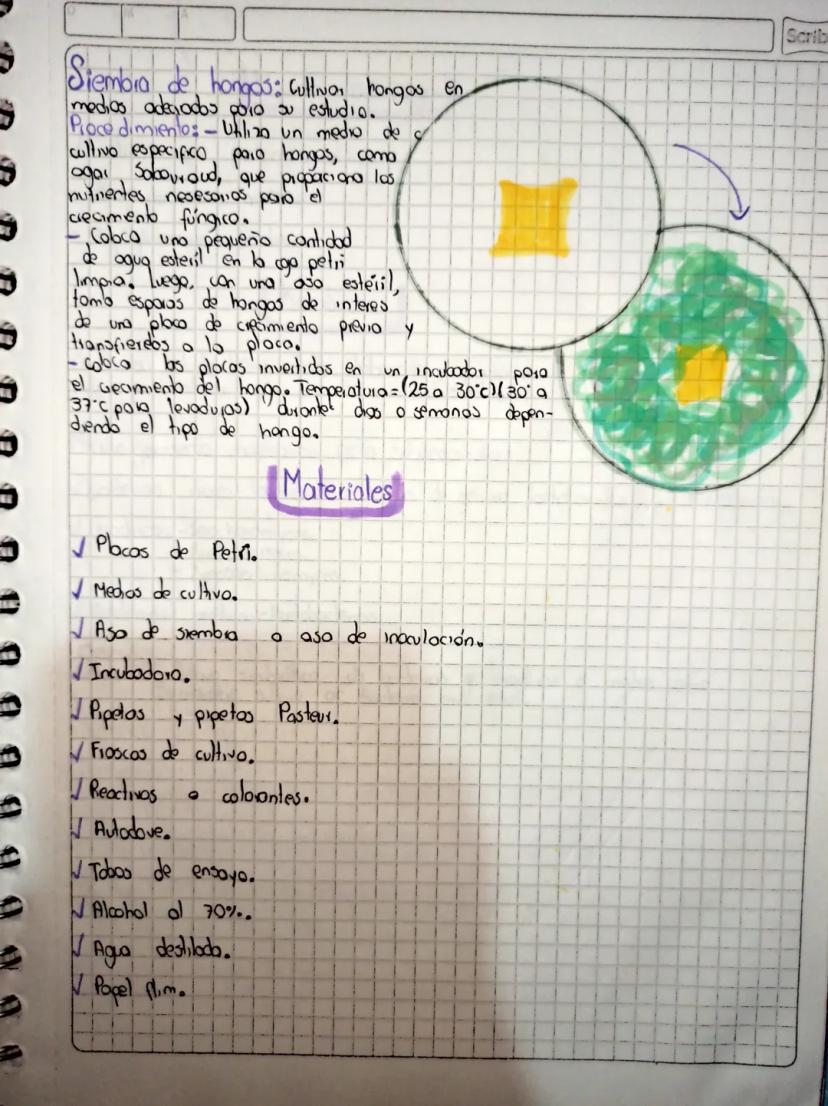 Scrib
Siembra de hongos: Cultivar hongos en
medios adecuados para su estudio.
Procedimiento: - Utiliza un medio de
cultivo especifico para hongos, como
agar Sabouraud, que propaciona los
nutrientes nesesarios para el
crecimiento fúngico.
- Coloca una pequeña cantidad
de agua esteril en la caja petri
limpia. Luego, con una asa estéril,
toma esporas de hongos de interes
de una placa de crecimiento previo y
transfierelos a la placa.
- Coloca las placas invertidas en un incubador para
el crecimiento del hongo. Temperatura = (25 a 30°c) (30° a
37°c para levaduras) durante dias o semanas depen-
diendo el tipo de hongo.
Materiales
✓ Placas de Petri.
✓ Medios de cultivo.
✓ Asa de siembra o asa de inoculación.
✓ Incubadora.
✓ Pipetas y pipetas Pasteur.
✓ Frascos de cultivo.
✓ Reactivos o colorantes.
✓ Autoclave.
✓ Tobos de ensayo.
✓ Alcohol al 70%.
✓ Agua destilada.
✓ Papel film.